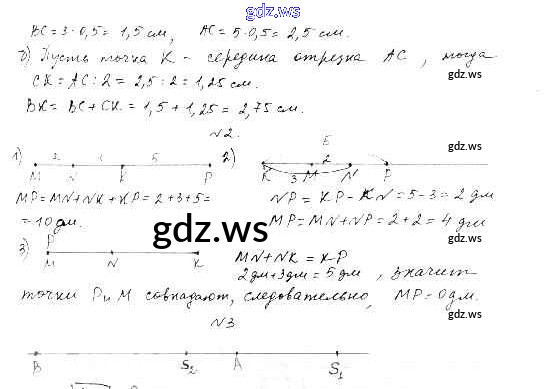 gdz.ws
BC = 3·0,5 = 1,5 см, AC = 5·0,5 = 2,5 см.
Пусть точка K - середина отрезка AC, тогда
gdz.ws
CK = AC : 2 = 2,5 : 2 = 1,25 см.
BK = BC + CK = 1,5 + 1,25 = 2,75 см.
N2.
gdz.ws
1) 2 5 2) E 2
M N K P K M N P
3
MP = MN + NK + KP = 2 + 3 + 5 = NP = KP - KN = 5 - 3 = 2 дм
= 10 дм. MP = MN + NP = 2 + 2 = 4 дм
gdz.ws
gdz.ws
3) P MN + NK = KP
M N K 2дм + 3дм = 5 дм, значит
точки P и M совпадают, следовательно, MP = 0 дм.
gdz.ws
N3
B S2 A S1